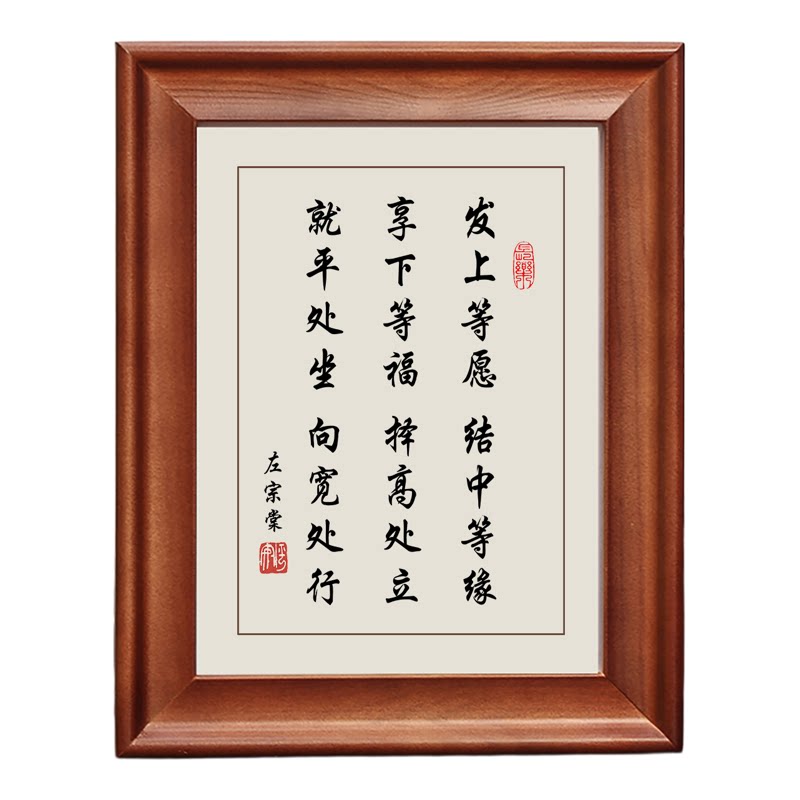 发上等愿 结中等缘
享下等福 择高处立
就平处坐 向宽处行
左宗棠
長樂